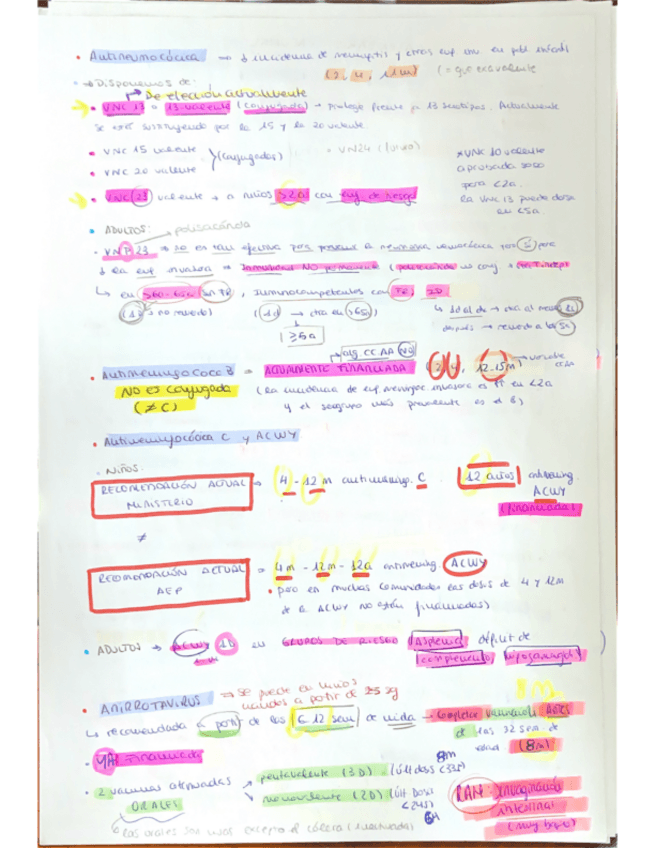 • Antineumocócica → ↓ incidencia de meningitis y otras enf. inv. en pobl. infantil
(2, 4, 11m) (= q la exavalente
→ Disponemos de:
De elección actualmente
• VNC 13 o 13 valente (conjugada) → protege frente a 13 serotipos. Actualmente
se está sustituyendo por la 15 y la 20 valente.
• VNC 15 valente
• VNC 20 valente
(conjugadas)
• VN24
* VNC 10 valente
aprobada solo
para <2a.
la VNC 13 puede darse
en <5a
• VNC 23 valente → a niños >2a con enf. de riesgo
• ADULTOS: polisacárida
• VNP 23 → no es tan efectiva para prevenir la neumonía neumocócica pero sí para
↓ la enf invasiva → Inmunidad NO permanente (polisacárida no conj
↳ en >65a sin FR, Inmunocompetentes con FR, ID
(1d → no recuerdo) (1d → otra en >65) ↳ 1d al dx → otra al
≥5a
después → recuerdo a los 5a
obj. CC AA NO
• Antimeningococo B = ACTUALMENTE FINANCIADA (2, 4, 12-15m) → variable CCAA
NO es conjugada
(≠ C)
(La incidencia de enf meningoc invasora es ↑↑ en <2a
y el serogrupo más prevalente es el B)
• Antimeningocócica C y ACWY
- Niños:
RECOMENDACIÓN ACTUAL
MINISTERIO
→ 4 - 12 m antimening. C 12 años antimening.
ACWY
(financiada)
≠
RECOMENDACIÓN ACTUAL
AEP
= 4m - 12m - 12a antimening ACWY
• pero en muchas comunidades las dosis de 4 y 12m
de la ACWY no están financiadas)
• ADULTOS → ACWY 1D en GRUPOS DE RIESGO (Asplenia, déficit de
complemento,
• ANTIRROTAVIRUS → Se puede en niños
nacidos a partir de 25 sg
↳ recomendada a partir de las 6-12 sem de vida → completar vacunación ANTES
de las 32 sem de
edad (8m)
• YA! Financiada
• 2 vacunas atenuadas
ORALES
pentavalente (3D) (últ dosis <33s) 8m
monovalente (2D) (últ Dosis
<24s) 6M
RAM: Invaginación
intestinal
(muy baja)
las orales son vivas excepto el cólera (inactivada)